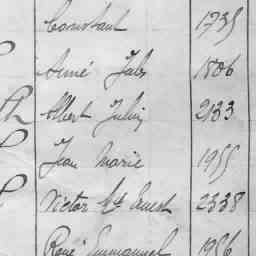 Constant 1735
Aimé Jules 1806
Albert Julien 2133
Jean Marie 1955
Victor Ernest 2338
René Emmanuel 1956